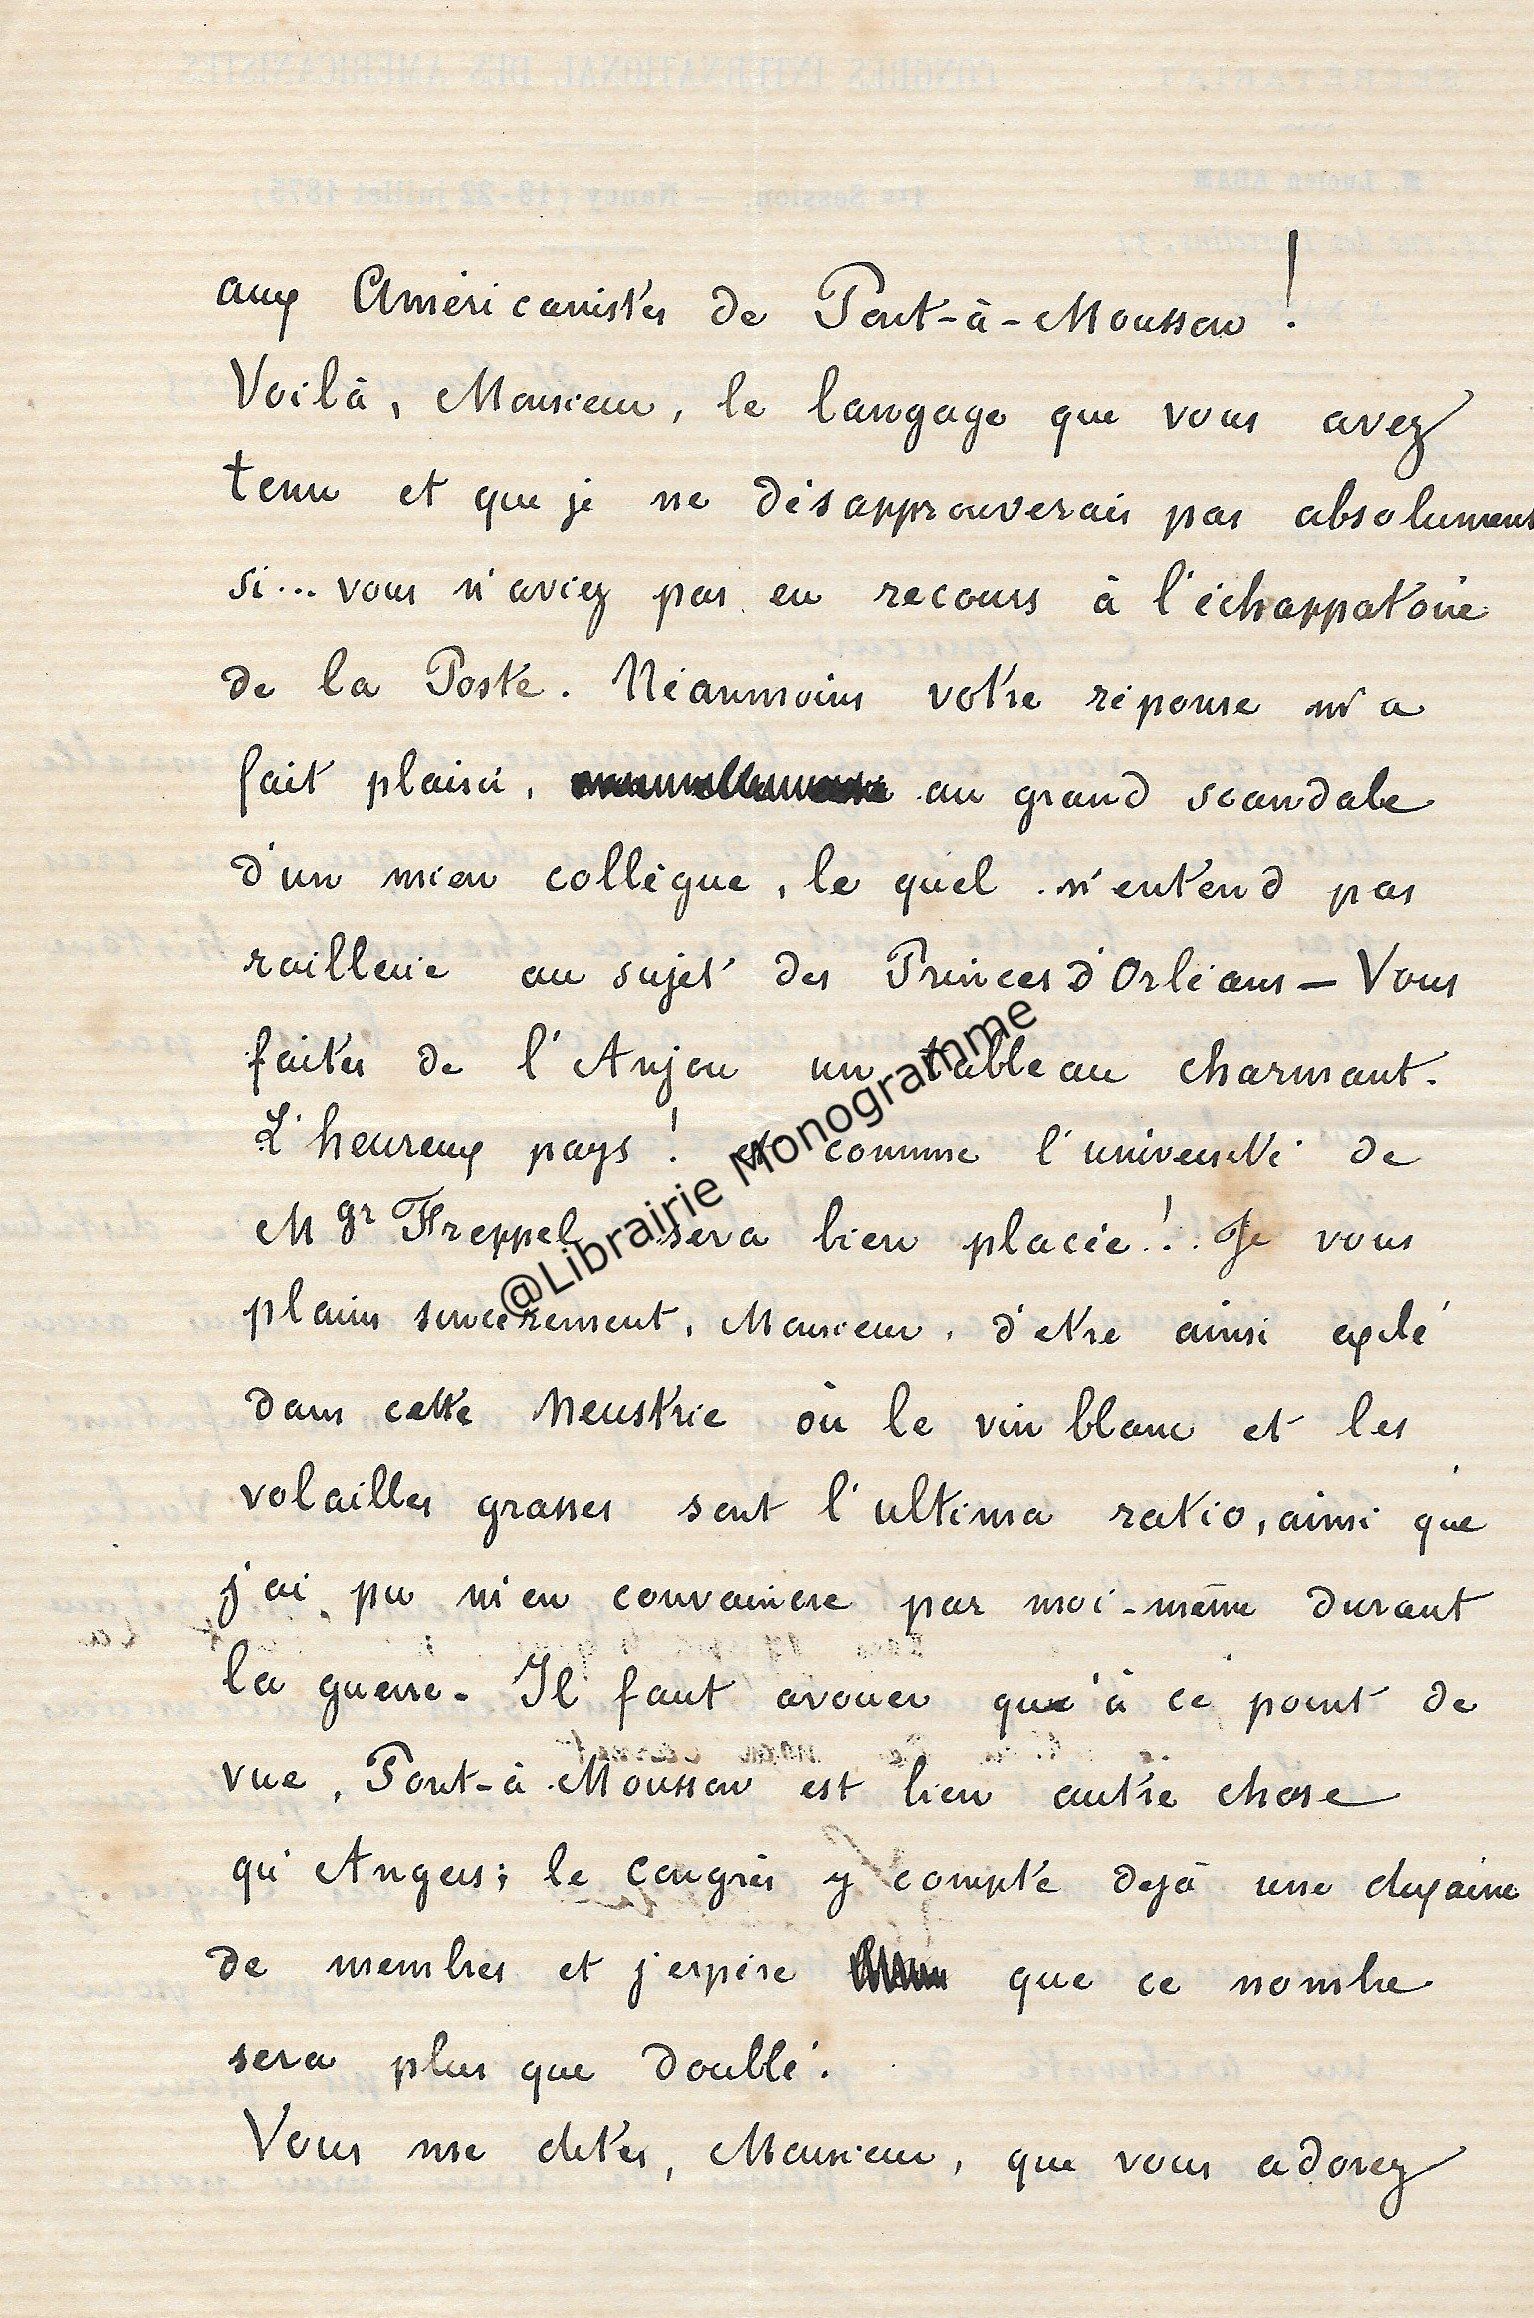 aux Américanistes de Pont-à-Mousson !
Voilà, Monsieur, le langage que vous avez
tenu et que je ne désapprouverais pas absolument
si... vous n'aviez pas eu recours à l'échappatoire
de la Poste. Néanmoins votre réponse m'a
fait plaisir, au grand scandale
d'un mien collègue, le quel n'entend pas
raillerie au sujet des Princes d'Orléans — Vous
faites de l'Anjou un tableau charmant.
L'heureux pays ! et comme l'université de
Mgr Freppel sera bien placée ! Je vous
plains sincèrement, Monsieur, d'etre ainsi exilé
dans cette Neustrie où le vin blanc et les
volailles grasses sont l'ultima ratio, ainsi que
j'ai pu m'en convaincre par moi-même durant
la guerre. Il faut avouer qu'à ce point de
vue, Pont-à-Mousson est bien autre chose
qu'Angers ; le Congrès y compte déjà une dizaine
de membres et j'espère que ce nombre
sera plus que doublé.
Vous me dites, Monsieur, que vous adorez
@Librairie Monogramme